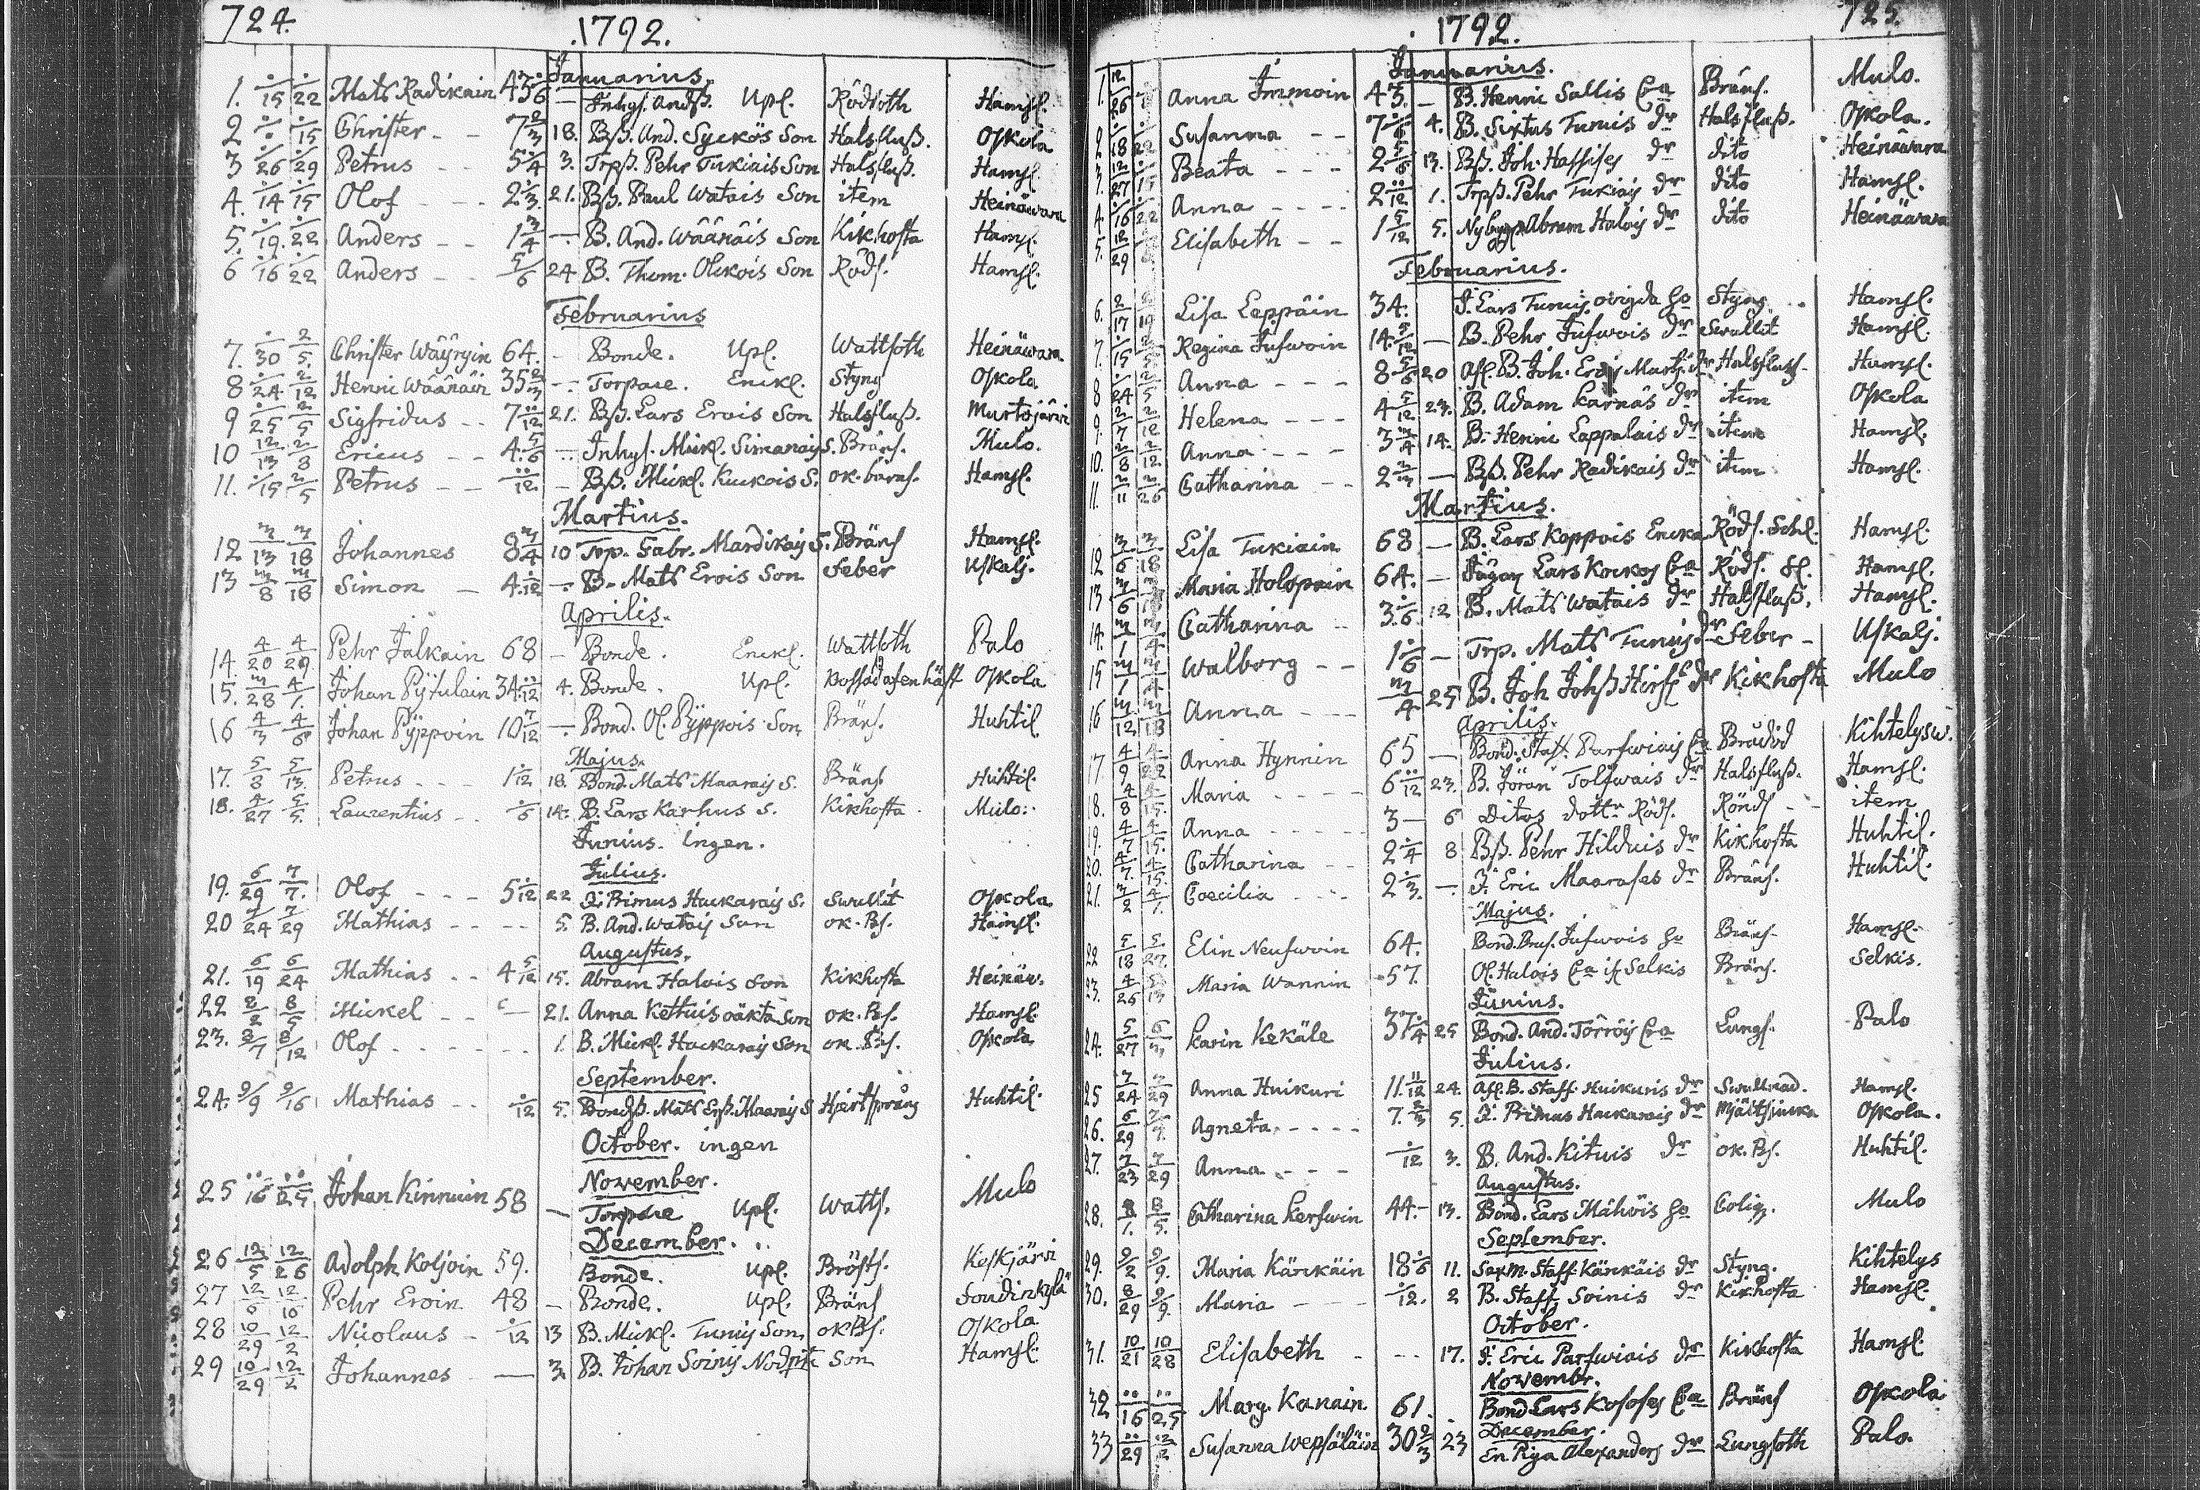 724.
1792.
Januarius.
1. ·/15 ·/22 Mats Radikain 43 Inhys. Upl. Rödsoth Hamsl.
2 ·/15 Christer - - 7 2/3 18. Bß. And. Syckös Son Halsfluß. Oskola
3 ·/26 ·/29 Petrus - - 5 ·/4 3. Trpß. Pehr Tukiais Son Halsfluß. Hamsl.
4. ·/14 ·/15 Olof - - - 2 ·/3 21. Bß. Paul Watais Son item Heinäwara
5. ·/19. ·/22 Anders - - 1 3/4 - B. And. Wäänäis Son Kikhosta Hamsl.
6 ·/16 ·/22 Anders - - 5/6 24 B. Thom. Olckois Son Röds. Hamsl.
Februarius
7. ·/30 2/5. Christer Wäyryin 64. - Bonde. Upl. Wattsoth Heinäwara
8 ·/24 2/12 Henric Wäänäin 35 2/3 - Torpare. Enckl. Styng Oskola
9 ·/25 2/5 Sigfridus - - 7 ··/12 21. Bß. Lars Erois Son Halsfluß. Murtojärvi
10 12/13 2/8 Ericus - - 4. 5/6 - Inhys. Mickl. Simanais S. Bräns. Mulo.
11. ·/15 2/5 Petrus - - ··/12 - Bß. Mickl. Kuckois S. ok. barns. Hamsl.
Martius.
12 3/13 3/18 Johannes 8 3/4 10 Trp. Gabr. Mardikais S. Bräns Hamsl.
13 3/8 3/18 Simon - 4. ·/12 - B. Mats Erois Son Feber Uskalj.
Aprilis.
14. 4/20 4/29 Pehr Jalkain 68 - Bonde. Enckl. Wattsoth Palo
15. 3/28 4/1. Johan Pytulain 34. ··/12 4. Bonde. Upl. Oskola
16 4/3 4/6 Johan Pyppoin 10 7/12 - Bond. Ol. Pyppois Son Bräns. Huhtil
Majus.
17. 5/8 5/13. Petrus - - - 1 ·/12 18. Bond. Mats Maarais S. Bräns Huhtil.
18. 4/27 5/5. Laurentius - - ·/6 14. B. Lars Karhus S. Kikhosta Mulo.
Junius. Ingen.
Julius.
19. 6/29 7/7. Olof - - 5 ·/12 22 I. Primus Hackarais S. Swullit Oskola
20 7/24 7/29 Mathias - - - - 5. B. And. Watais Son ok. Bs. Hamsl.
Augustus.
21. 6/19 6/24 Mathias - - 4 5/12 15. Abram Halois Son Kikhosta Heinäw.
22 8/2 8/5 Mickel - - - 21. Anna Kettuis oäkta Son ok. Bs. Hamsl.
23. 8/7 8/12 Olof - - - - - 1. B. Mickl. Hackarais Son ok. Bs. Oskola
September.
24. 9/9 9/16 Mathias - - ·/12 5. Bondß. Mats Erß. Maarais S Hjertsprång Huhtil.
October. ingen
November.
25 ··/16 ··/25 Johan Kinnuin 58 - Torpare Upl. Watts. Mulo
December.
26 12/5 12/26 Adolph Koljoin 59. Bonde. Upl. Brösts. Keskjärvi
27 12/9 12/16 Pehr Eroin 48 - Bonde. Upl. Bräns Soudinkylä
28 10/29 12/2 Nicolaus - ·/12 13 B. Mickl. Tunis Son, okBs. Oskola
29 10/29 12/2 Johannes - — 3. B. Johan Soinis Son Hamsl.
1792.
725.
Januarius.
1. 12/26 Anna Immoin 43. - B. Henric Sallis Bräns. Mulo.
2 ·/18 ·/22 Susanna - - 7 ·/6 4. B. Sixtus Tunis dr Halsfluß. Oskola.
3. 12/27 ·/15 Beata - - - 2 5/6 13. Bß. Joh. Hassises dr dito Heinäwara
4. ·/16 ·/22 Anna - - - - 2 ··/12 1. Trpß. Pehr Tukiais dr dito Hamsl.
5. 12/29 Elisabeth - - 1 5/12 5. Abram Halois dr dito Heinäwara
Februarius.
6. 2/17 2/19 Lisa Leppäin 34. I. Lars Tunis. Styng. Hamsl.
7. ·/15 Regina Jufwoin 14. 5/12 - B. Pehr Jufwois dr Swullit Hamsl.
8 ·/24 2/5 Anna - - - 8 5/6 20 Afl. B. Joh. Halsfluß. Hamsl.
9. 2/7 2/12 Helena - - - 4 5/12 23. B. Adam Karnäs dr item Oskola
10. 2/8 2/12 Anna - - - 3 3/4 14. B. Henric Lappalais dr item Hamsl.
11. 2/11 2/26 Catharina - - 2 2/3 - Bß. Pehr Radikais dr item Hamsl.
Martius.
12 3/6 3/18 Lisa Tukiain 68 - B. Lars Koppois Encka Röds. Hamsl.
13 3/6 Maria Holopain 64. - Lars Röds. Hamsl.
14. 3/1 3/4 Catharina - 3. ·/6. 12 B. Mats Watais dr Halsfluß. Hamsl.
15 3/1 3/4 Walborg - - 1 ·/6 - Trp. Mats Tunis. dr Feber - Uskalj.
16 3/12 3/18 Anna - - - 3/4 25 B. Joh Johß Hirss dr Kikhosta Mulo
Aprilis.
17. 4/9 4/22 Anna Hynnin 65 - Bond. Staff. Parfwiais Brådöd Kihtelysw.
18. 4/8 4/15. Maria - - - - 6 ··/12 23. B. Jöran Tolfwais dr Halsfluß. Hamsl.
19. 4/7 4/15. Anna - - - - - 3 - 6 Ditos dottr Röds. item
20. 4/7. 4/15. Catharina - - 2 ·/4 8 Bß. Pehr Hilduis dr Kikhosta Huhtil.
21. 3/2 4/1. Coecilia - - - 2 ·/3. - I. Eric Maarases dr Bräns. Huhtil.
Majus.
22 5/18 5/27. Elin Neufwoin 64. Bond. Jufwois Bräns. Hamsl.
23. 4/26 5/13 Maria Wannin 57. Ol. Halois Selkis Bräns. Selkis.
Junius.
24. 5/27 6/3 Karin Kekäle 37 ·/4 25 Bond. And. Törröis Lungs. Palo
Julius.
25 7/24 7/29 Anna Huikuri 11. 11/12 24. Afl. B. Staff. Huikuris dr Swullnad. Hamsl.
26. 6/29 7/7. Agneta - - - - - 7. 2/3 5. I. Primus Hackarais dr Mjältsjuka Oskola.
27. 7/23 7/29 Anna - - - ·/12 3. B. And. Kituis dr ok. Bs. Huhtil.
Augustus.
28. 8/1. 8/5. Catharina Kerfwin 44. - 13. Bond. Lars Mähöis Mulo
September.
29. 9/2 9/9. Maria Kärckäin 18 ·/6 11. Staff Kärckäis dr Styng. Kihtelys
30. 8/29 9/9. Maria - - - - ·/12. 2 B. Staff. Soinis dr Kikhosta Hamsl.
October.
31. 10/21 10/28 Elisabeth - - - 17. I. Eric Parfwiais dr Kikhosta Hamsl
Novembr.
32 ··/16 ··/25 Marg. Kanain 61. Bond Lars Kososes Bräns Oskola.
December.
33 ··/29 12/2 Susanna Wepsäläin 30 2/3 23 En Piga Alexanders dr Lungsoth Palo.